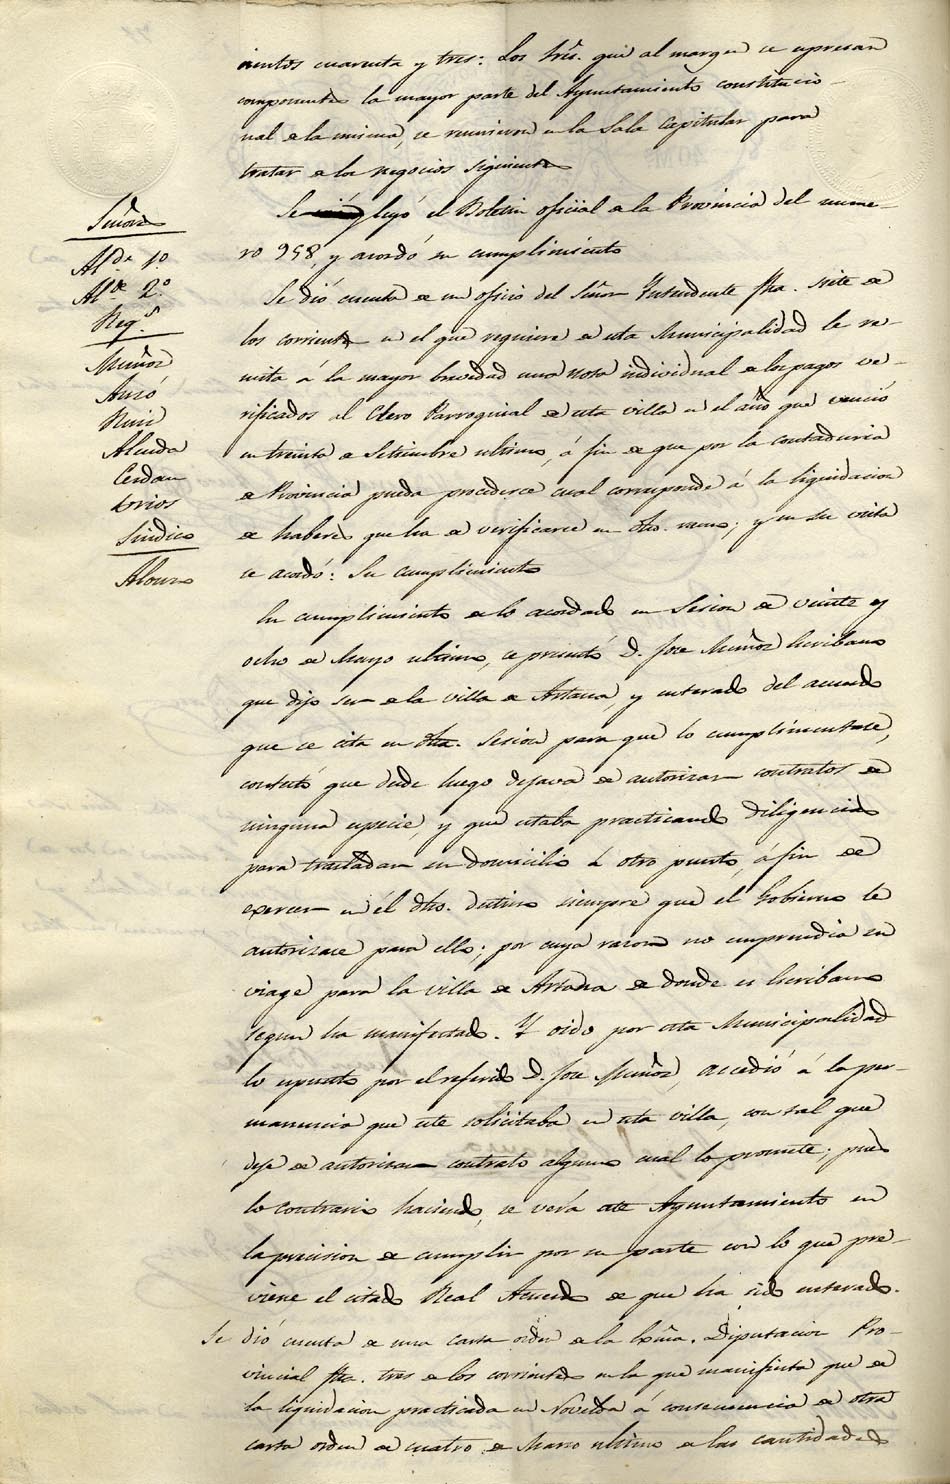 Señores
Alde. 1.º
Alde. 2.º
Regs.
Muñoz
Anzó
Ruiz
Almida
Cerdan
Brios
Sindico
Alonso
cientos cuarenta y tres: Los Sres. que al margen se espresan
componentes la mayor parte del Ayuntamiento constitucio-
nal de la misma, se reunieron en la Sala Capitular para
tratar de los negocios siguientes
Se leyó el Boletin oficial de la Provincia del nume-
ro 958, y acordó su cumplimiento
Se dió cuenta de un oficio del Señor Intendente fha. siete de
los corrientes en el que requiere de esta Municipalidad le re-
mita á la mayor brevedad una nota individual de los pagos ve-
rificados al Clero Parroquial de esta villa en el año que venció
en treinta de Setiembre ultimo, á fin de que por la contaduria
de Provincia pueda procederse cual corresponde á la liquidacion
de haberes que ha de verificarse en dho. mes; y en su vista
se acordó: Su cumplimiento
En cumplimiento de lo acordado en Sesion de veinte y
ocho de Mayo ultimo, se presentó D. Jose Muñoz Escribano
que dijo ser de la villa de Artana, y enterado del acuerdo
que se cita en dha. Sesion para que lo cumplimentase,
contestó que desde luego dejava de autorizar contratos de
ninguna especie, y que estaba practicando diligencias
para trasladar su domicilio á otro punto, á fin de
exercer en él dho. destino siempre que el Gobierno le
autorizase para ello; por cuya razon no emprendia su
viage para la villa de Artana de donde es Escribano
segun ha manifestado. Y oido por esta Municipalidad
lo espuesto por el referido D. Jose Muñoz, accedió á la per-
manencia que este solicitaba en esta villa, con tal que
deje de autorizar contrato alguno cual lo promete; pues
lo contrario haciendo, se verá este Ayuntamiento en
la precision de cumplir por su parte con lo que pre-
viene el citado Real Acuerdo de que ha sido enterado.
Se dió cuenta de una carta orden de la Exma. Diputacion Pro-
vincial fha. tres de los corrientes en la que manifiesta que de
la liquidacion practicada en Novelda á consecuencia de otra
carta orden de cuatro de Marzo ultimo de las cantidades